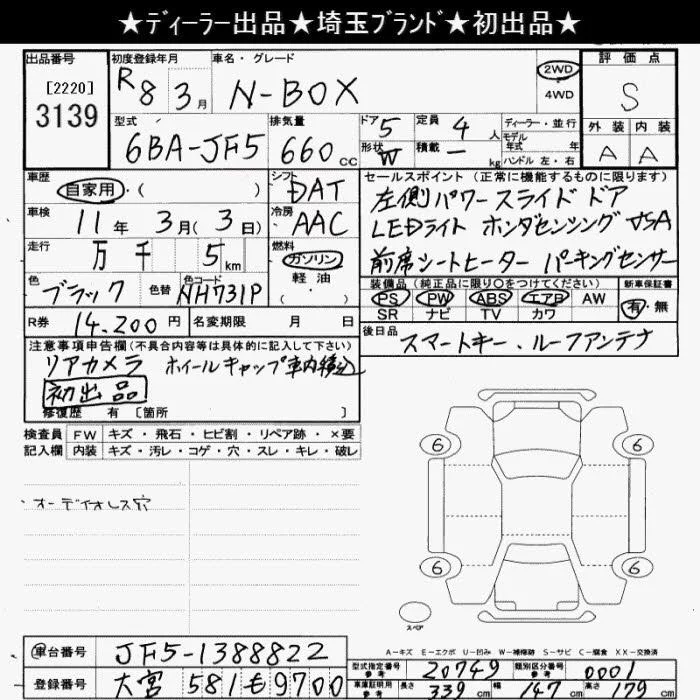 ★ディーラー出品★埼玉ブランド★初出品★
出品番号 初度登録年月 車名・グレード 評価点
[2220] R8年3月 N-BOX 2WD S
3139 4WD
型式 排気量 ドア 5 定員 4人 ディーラー・並行 外装 内装
6BA-JF5 660cc 形状 W 積載 ー kg モデル年式 年 A A
ハンドル 左・右
車歴 シフト セールスポイント (正常に機能するものに限ります)
自家用・( ) DAT 左側パワースライドドア
車検 11年3月(3日) 冷房 AAC LEDライト ホンダセンシング VSA
走行 万千5km 燃料 ガソリン・軽油( ) 前席シートヒーター パーキングセンサー
色 ブラック 色替 色コード NH731P 装備品 (純正品に限り〇をつけてください) 新車保証書
PS PW ABS エアB AW 有・無
SR ナビ TV カワ
R券 14,200円 名変期限 月 日 後日品 スマートキー、ルーフアンテナ
注意事項申告欄(不具合内容等は具体的に記入して下さい)
リアカメラ ホイールキャップ車内積込
初出品
修復歴 有 [箇所 ]
検査員 FW キズ・飛石・ヒビ割・リペア跡・×要
記入欄 内装 キズ・汚レ・コゲ・穴・スレ・キレ・破レ
・オーディオレス穴
6 6
6 6
スペア
A-キズ E-エクボ U-凹み W-補修跡 S-サビ C-腐食 XX-交換済
車台番号 JF5-1388822 型式指定番号 参考 20749 類別区分番号 参考 0001
登録番号 大宮 581 も 9700 車庫証明用 参考 長さ 339cm 幅 147cm 高さ 179cm